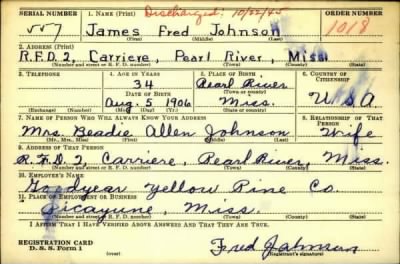 SERIAL NUMBER 1. NAME (Print) Discharged: 10/22/45 ORDER NUMBER
557 James Fred Johnson 1018
(First) (Middle) (Last)
2. ADDRESS (Print)
R.F.D. 2, Carriere, Pearl River, Miss.
(Number and street or R. F. D. number) (Town) (County) (State)
3. TELEPHONE 4. AGE IN YEARS 5. PLACE OF BIRTH 6. COUNTRY OF CITIZENSHIP
34 Pearl River
DATE OF BIRTH (Town or county)
Aug. 5 1906 Miss. U.S.A.
(Exchange) (Number) (Mo.) (Day) (Yr.) (State or country)
7. NAME OF PERSON WHO WILL ALWAYS KNOW YOUR ADDRESS 8. RELATIONSHIP OF THAT PERSON
Mrs. Beadie Allen Johnson Wife
(Mr., Mrs., Miss) (First) (Middle) (Last)
9. ADDRESS OF THAT PERSON
R.F.D. 2, Carriere, Pearl River, Miss.
(Number and street or R. F. D. number) (Town) (County) (State)
10. EMPLOYER'S NAME
Goodyear Yellow Pine Co.
11. PLACE OF EMPLOYMENT OR BUSINESS
Picayune, Miss.
(Number and street or R. F. D. number) (Town) (County) (State)
I AFFIRM THAT I HAVE VERIFIED ABOVE ANSWERS AND THAT THEY ARE TRUE.
REGISTRATION CARD
D. S. S. Form 1 Fred Johnson
(Registrant's signature)